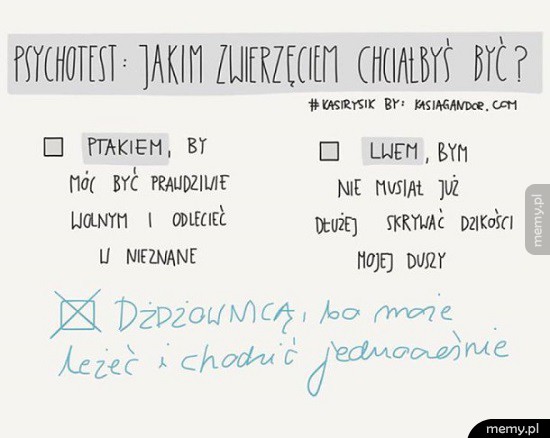 PSYCHOTEST: JAKIM ZWIERZĘCIEM CHCIAŁBYŚ BYĆ?
#KASIRYSIK BY: KASIAGANDOR.COM
PTAKIEM, BY
MÓC BYĆ PRAWDZIWIE
WOLNYM I ODLECIEĆ
W NIEZNANE
LWEM, BYM
NIE MUSIAŁ JUŻ
DŁUŻEJ SKRYWAĆ DZIKOŚCI
MOJEJ DUSZY
DŻDŻOWNICĄ, bo może
leżeć i chodzić jednocześnie
memy.pl
memy.pl